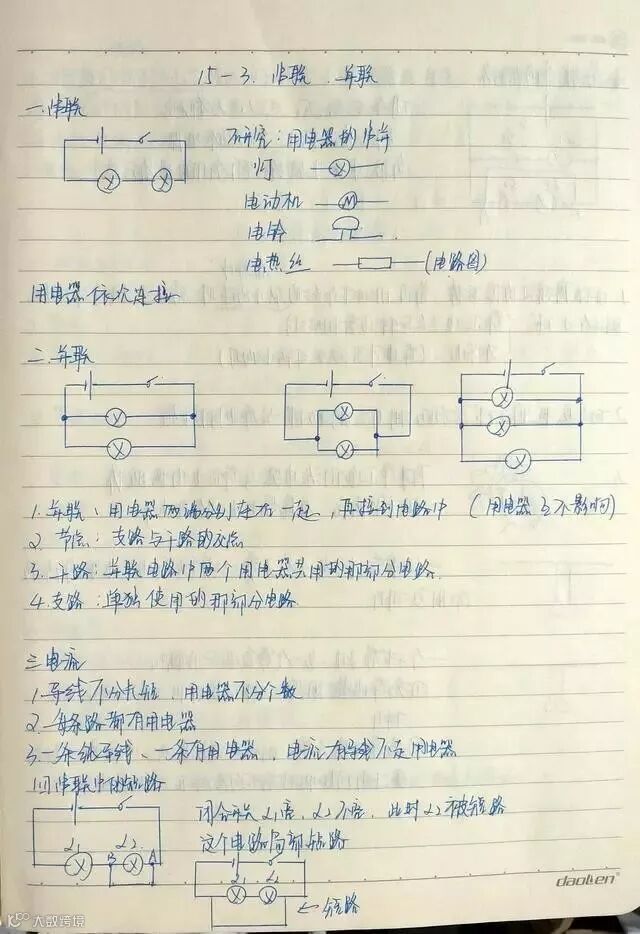 15-3. 串联、并联
一.串联
研究：用电器的串并
灯 X
电动机 M
电铃
电热丝 (电路图)
用电器依次连接
二.并联
X
X
X
X
X
X
X
1.并联：用电器两端分别连在一起，再接到电路中 (用电器互不影响)
2.节点：支路与干路的交点
3.干路：并联电路中两个用电器共用的那部分电路.
4.支路：单独使用的那部分电路.
三.电流
1.导线不分长短 用电器不分个数
2.每条路都有用电器
3.一条纯导线、一条有用电器，电流有导线不走用电器
(1)串联中的短路
闭合开关L1亮、L2不亮，此时L2被短路
这个电路局部短路
L1 L2
X B X A
L1 L2
X X
←短路
daolien
K100 大数跨境